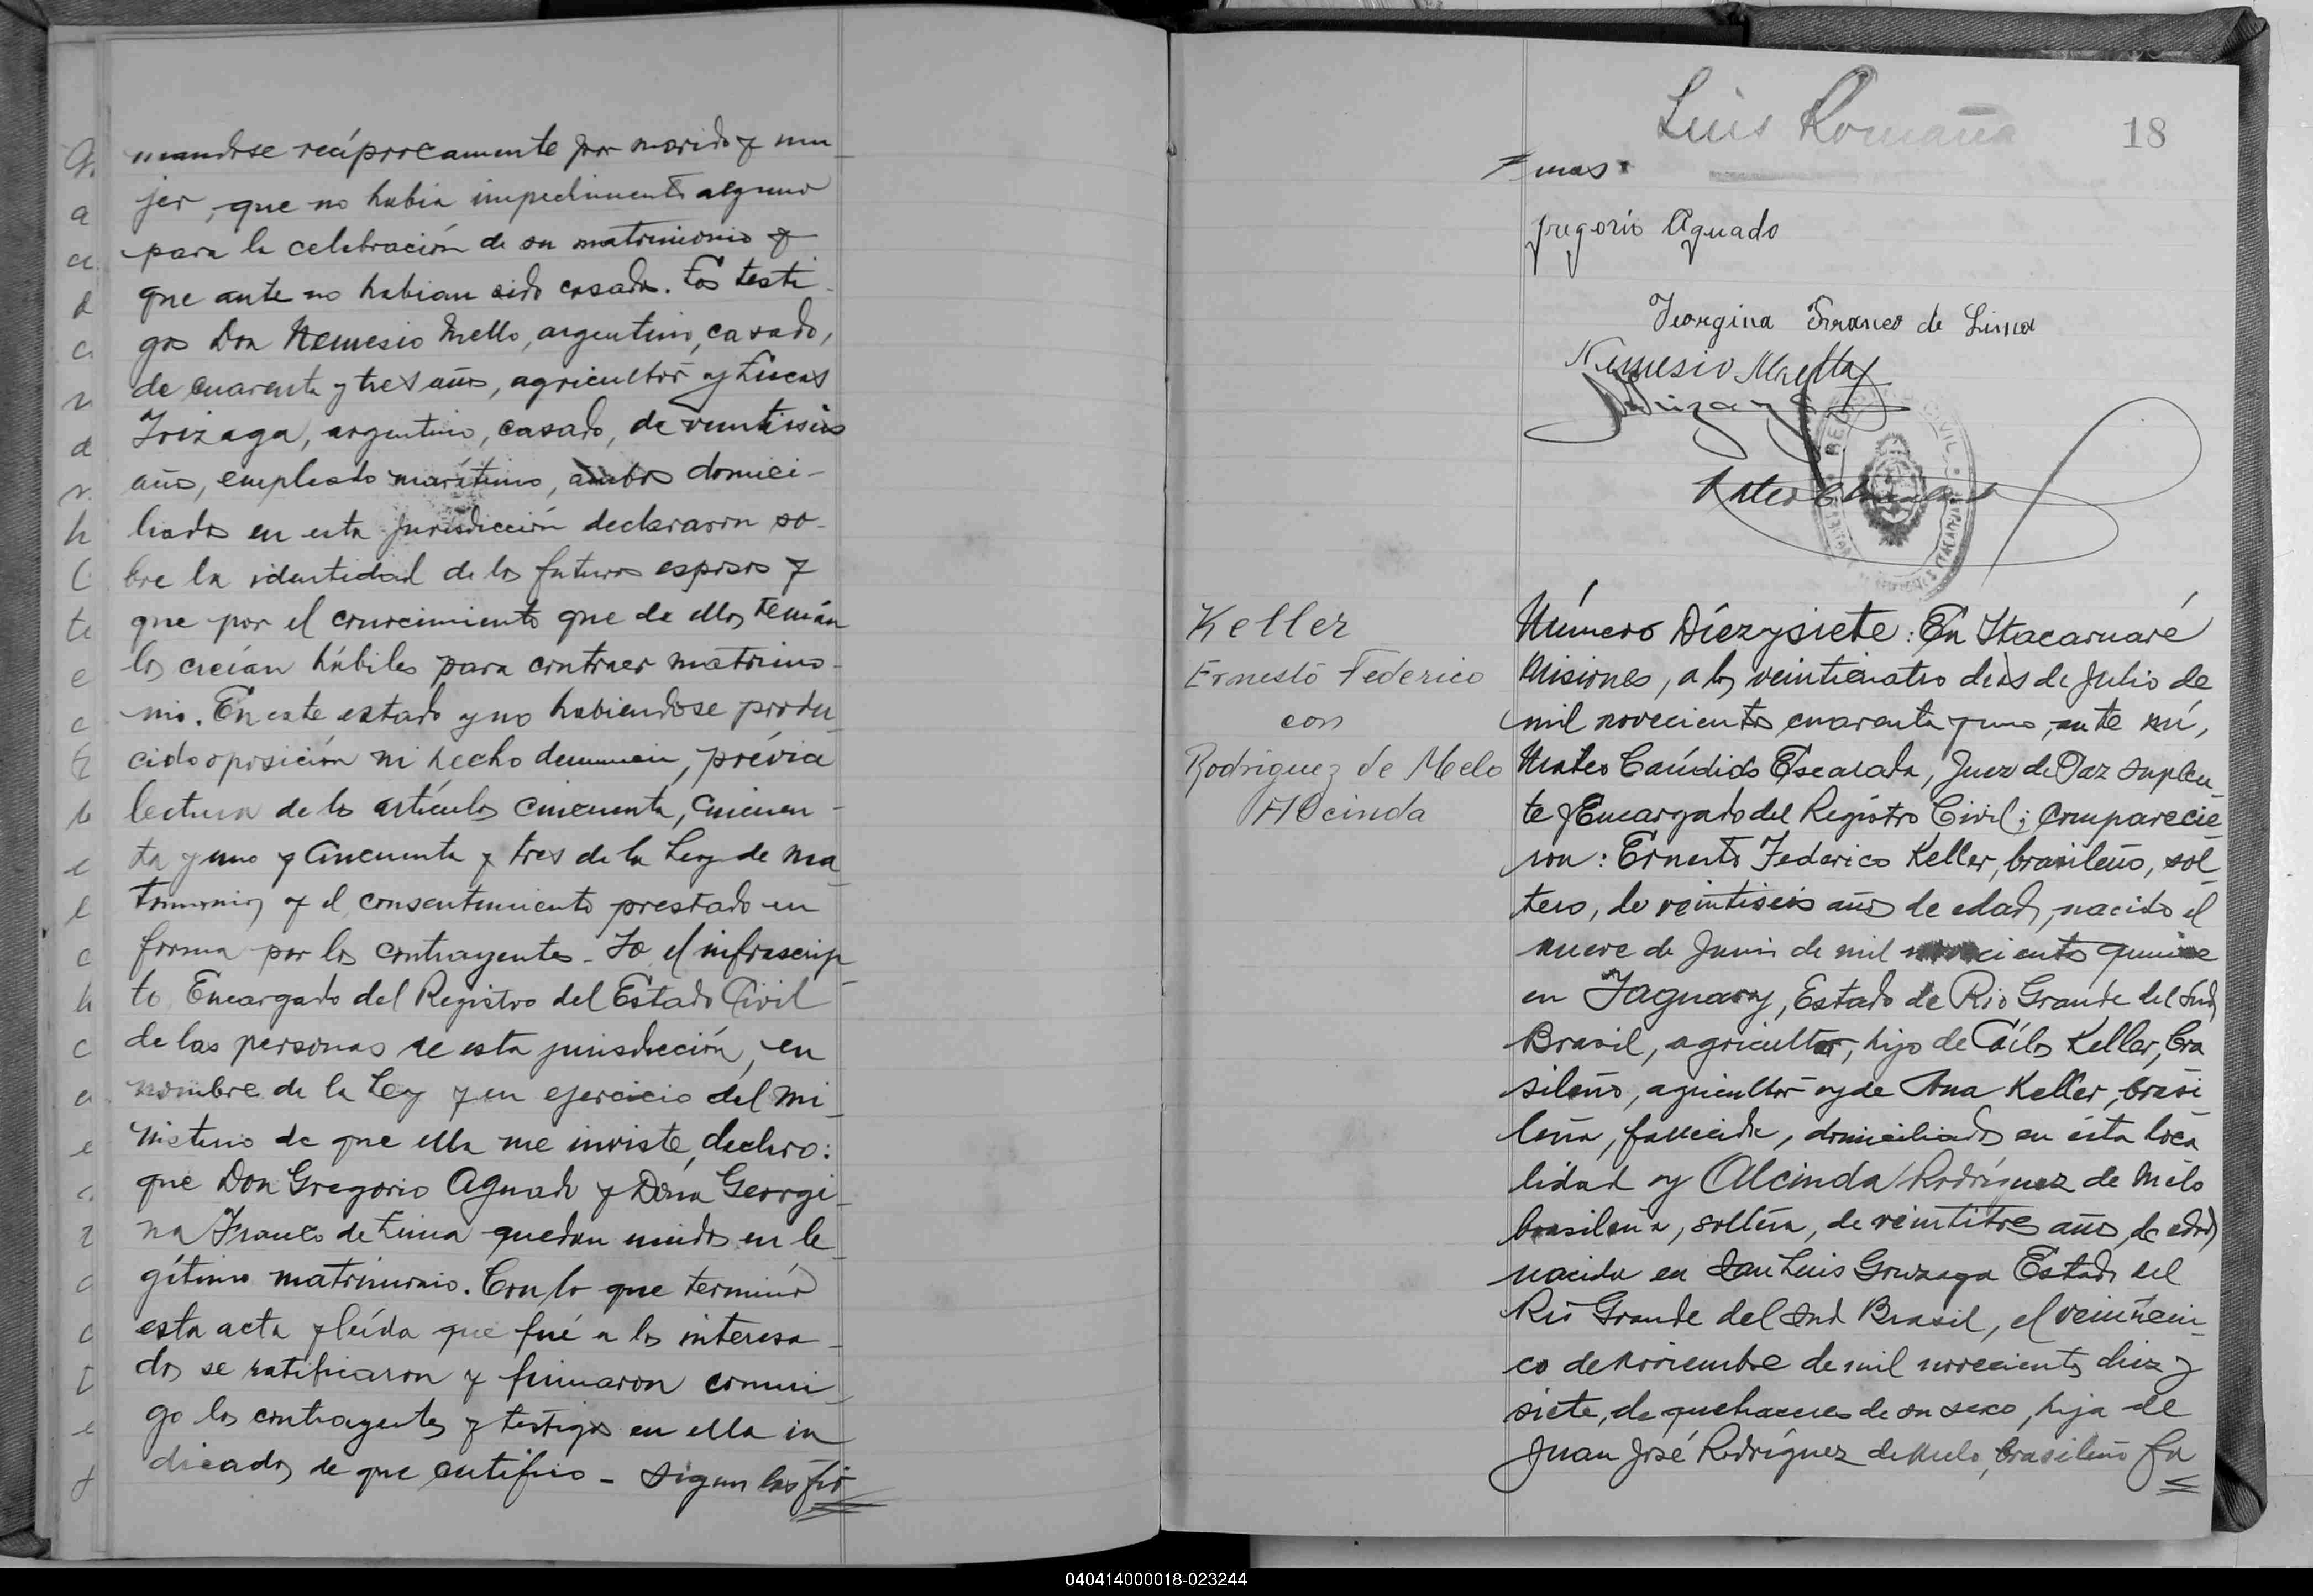 mandose recíprocamente por marido y mu
jer, que no habia impedimento alguno
para la celebración de su matrimonio y
que ante no habian sido casado. Los testi
gos Don Nemesio Mello, argentino, casado,
de cuarenta y tres años, agricultor y Lucas
Irizaga, argentino, casado, de veintiseis
años, empleado marítimo, ambos domici-
liados en esta jurisdicción declararon so-
bre la identidad de los futuros esposos y
que por el conocimiento que de ellos tenían
los creían hábiles para contraer matrimo-
nio. En este estado y no habiendose produ
cido oposición ni hecho denuncia, prévia
lectura de los artículos cincuenta, cincuen-
ta y uno y cincuenta y tres de la Ley de ma
trimonio y el consentimiento prestado en
forma por los contrayentes - Yo el infrascrip
to Encargado del Registro del Estado Civil
de las personas de esta jurisdicción, en
nombre de la Ley y en ejercicio del mi
nisterio de que ella me inviste, declaro:
que Don Gregorio Aguado y Doña Georgi
na Franco de Lima quedan unidos en le
gítimo matrimonio. Con lo que terminó
esta acta y leída que fué a los interesa
dos se ratificaron y firmaron conmi
go los contrayentes y testigos en ella in
dicados de que certifico - Siguen las fir
Luis Romaña
18
mas
Gregorio Aguado
Georgina Franco de Lima
Nemesio Mello
Irizaga
Keller
Ernesto Federico
con
Rodriguez de Melo
Alcinda
Número Diezysiete: En Itacaruaré
Misiones, a los veinticuatro dias de Julio de
mil novecientos cuarenta y uno, ante mí,
Mateo Cándido Escalada, Juez de Paz Suplen
te y Encargado del Registro Civil; comparecie
ron: Ernesto Federico Keller, brasileño, sol
tero, de veintiseis años de edad, nacido el
nueve de Junio de mil novecientos quince
en Jaguary, Estado de Rio Grande del Sud
Brasil, agricultor, hijo de Keller, bra
sileño, agricultor y de Ana Keller, brasi
leña, fallecida, domiciliado en ésta loca
lidad y Alcinda Rodríguez de Melo
brasileña, soltera, de veintitres años, de edad
nacida en San Luis Gonzaga Estado del
Rio Grande del Sud Brasil, el veinticin
co de noviembre de mil novecientos diez y
siete, de quehaceres de su sexo, hija de
Juan José Rodríguez de Melo, brasileño fa
040414000018-023244